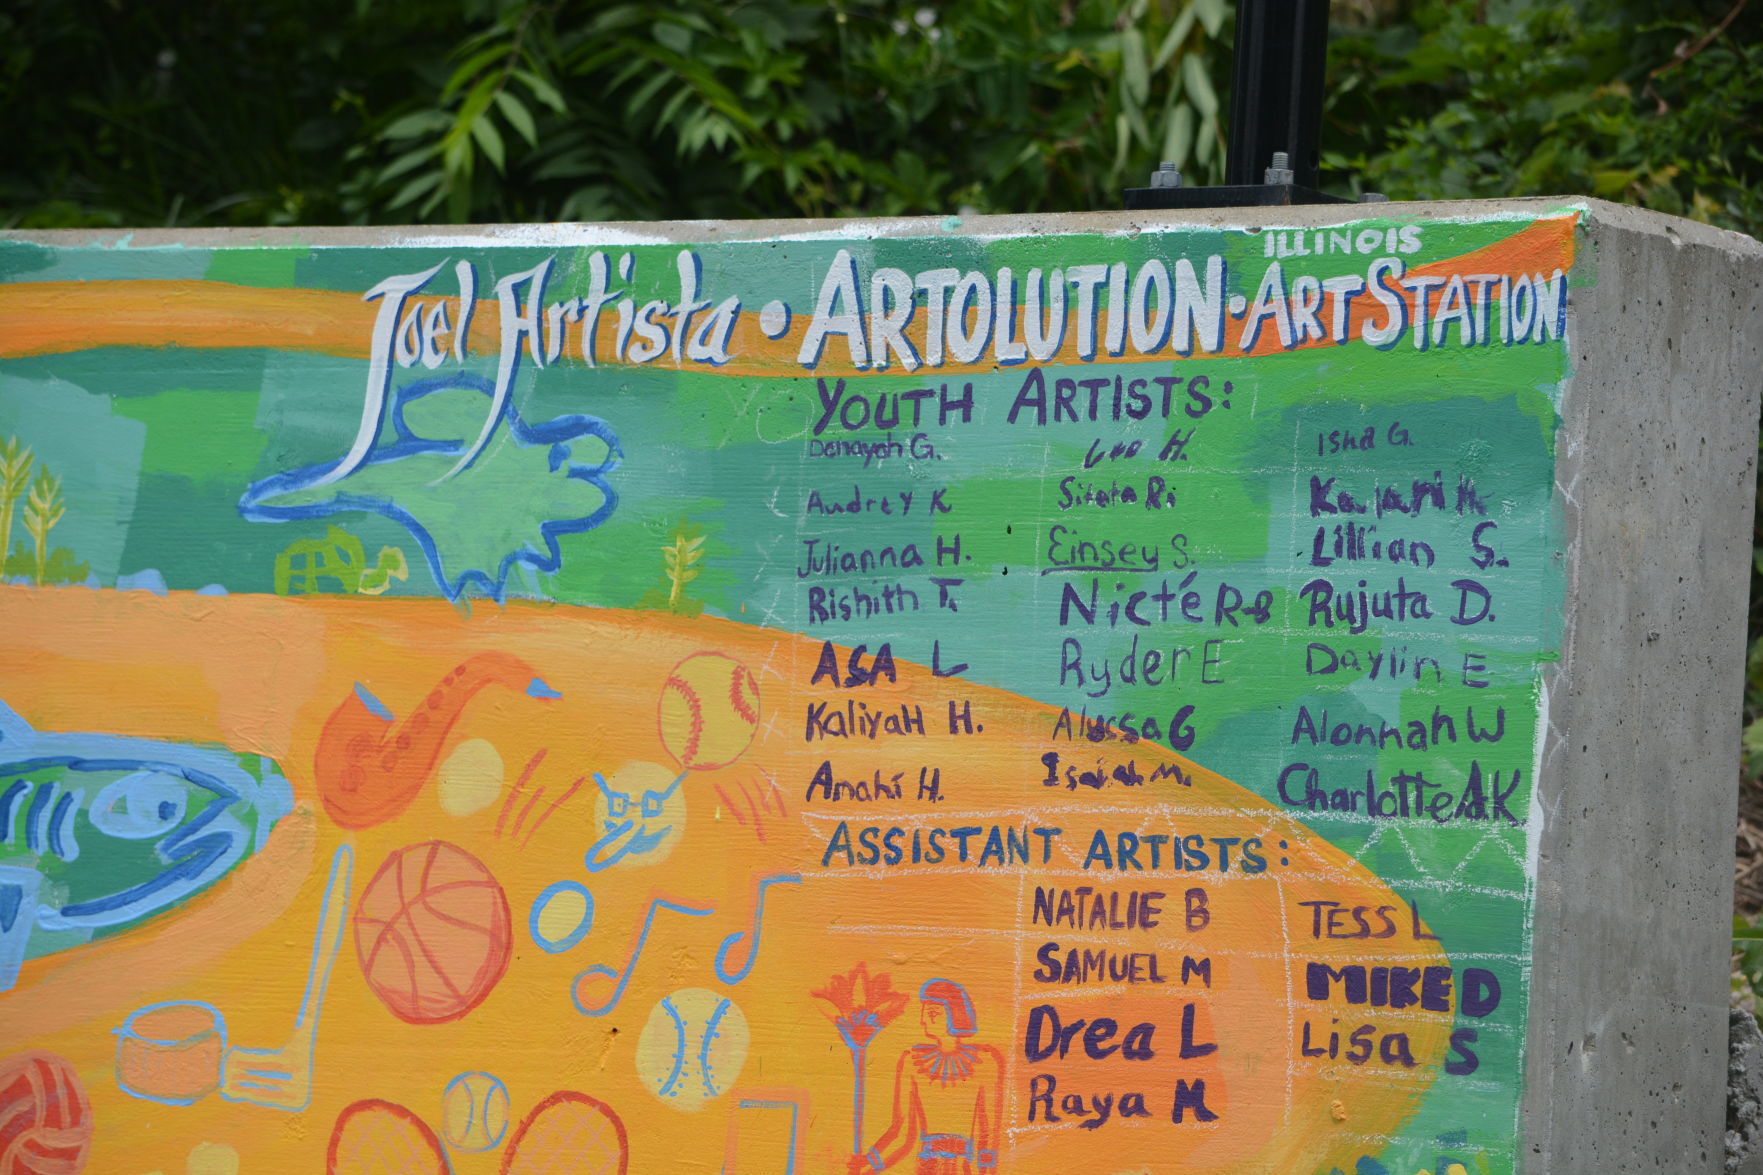 ILLINOIS
Joel Artista • ARTOLUTION • ARTSTATION
YOUTH ARTISTS:
Danayah G. Leo H. Isha G.
Audrey K R. K
Julianna H. Einsey S. Lillian S.
Rishith T. Nicté R-B Rujuta D.
ASA L Ryder E Daylin E
KaliyaH H. Alyssa G Alonnah W
Amahí H. Isaiah M. Charlotte A.K
ASSISTANT ARTISTS:
NATALIE B TESS L
SAMUEL M MIKE D
Drea L Lisa S
Raya M